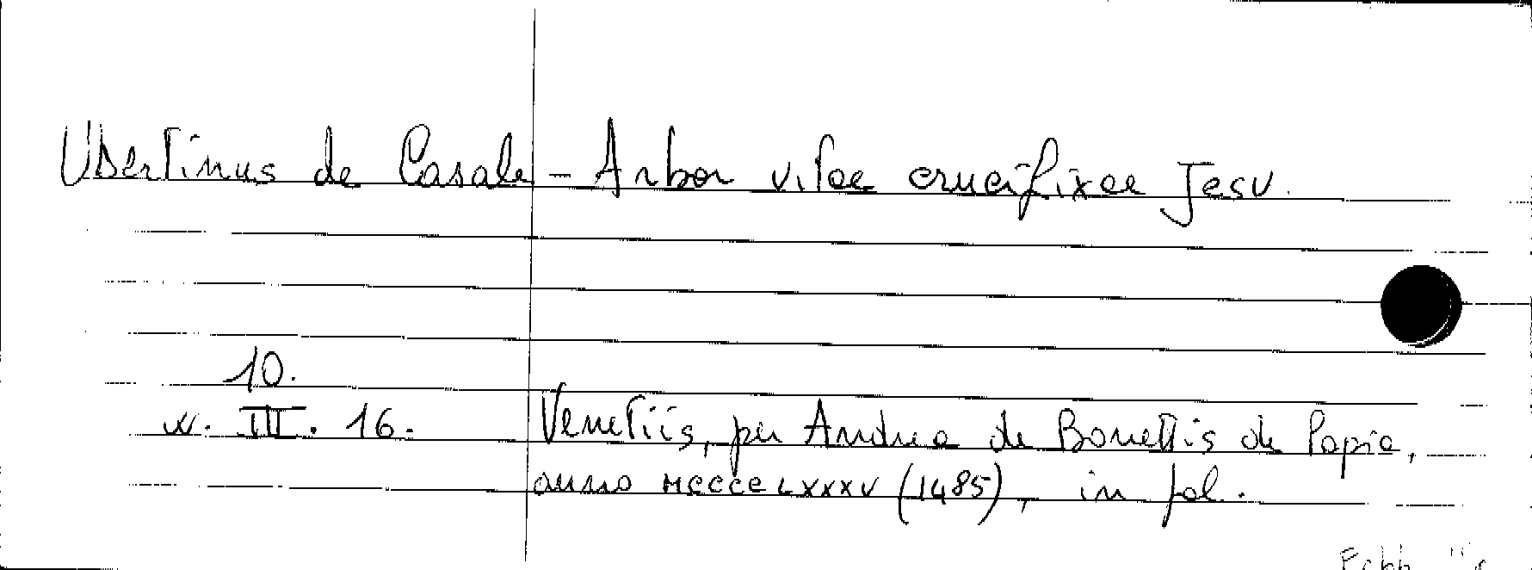 Ubertinus de Casale - Arbor vitae crucifixae Jesu.
10.
w. III. 16.
Venetiis, per Andrea de Bonettis de Papia,
anno MCCCCLXXXV (1485), in fol.